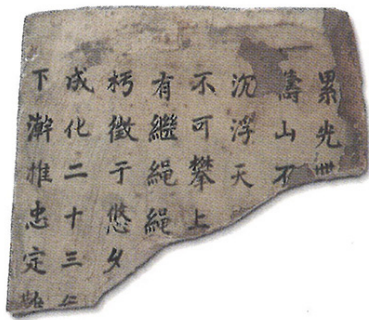 累光世
壽山不
沉浮天
不可攀上
有繼繩繩
朽徵于悠久
成化二十三年
下澣推忠定